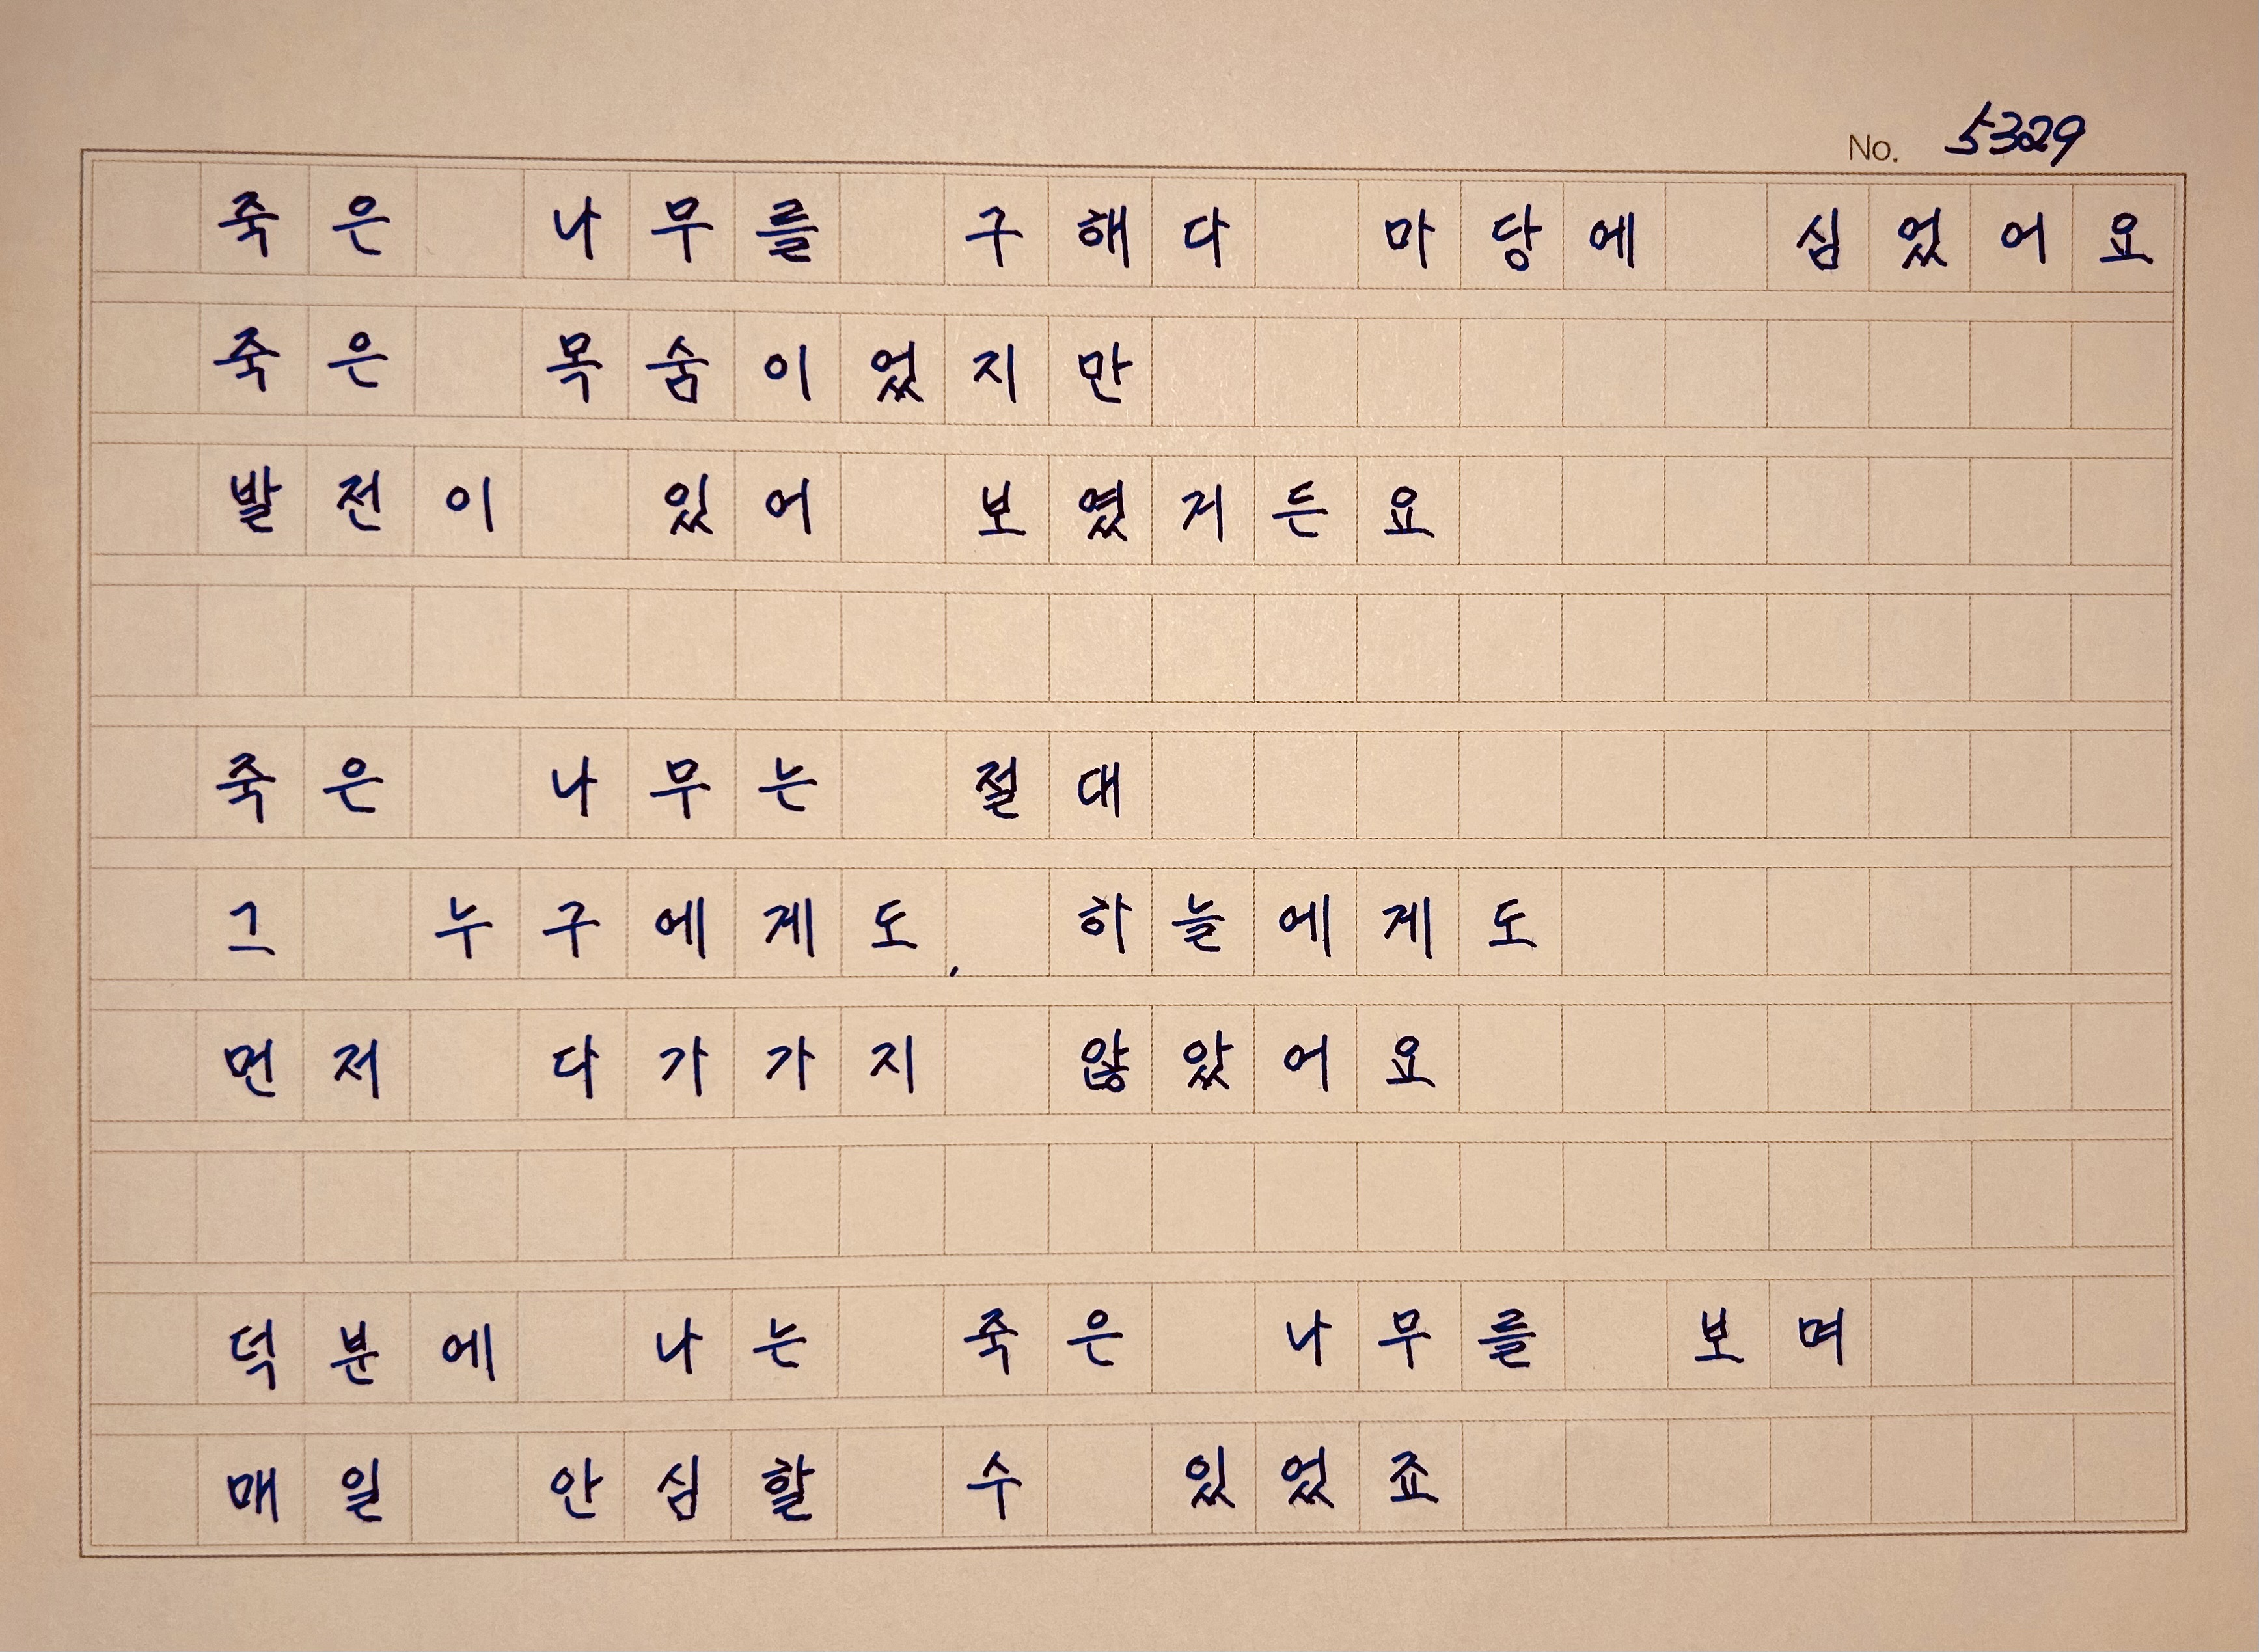 No. 5329
죽은 나무를 구해다 마당에 심었어요
죽은 목숨이었지만
발전이 있어 보였거든요
죽은 나무는 절대
그 누구에게도, 하늘에게도
먼저 다가가지 않았어요
덕분에 나는 죽은 나무를 보며
매일 안심할 수 있었죠